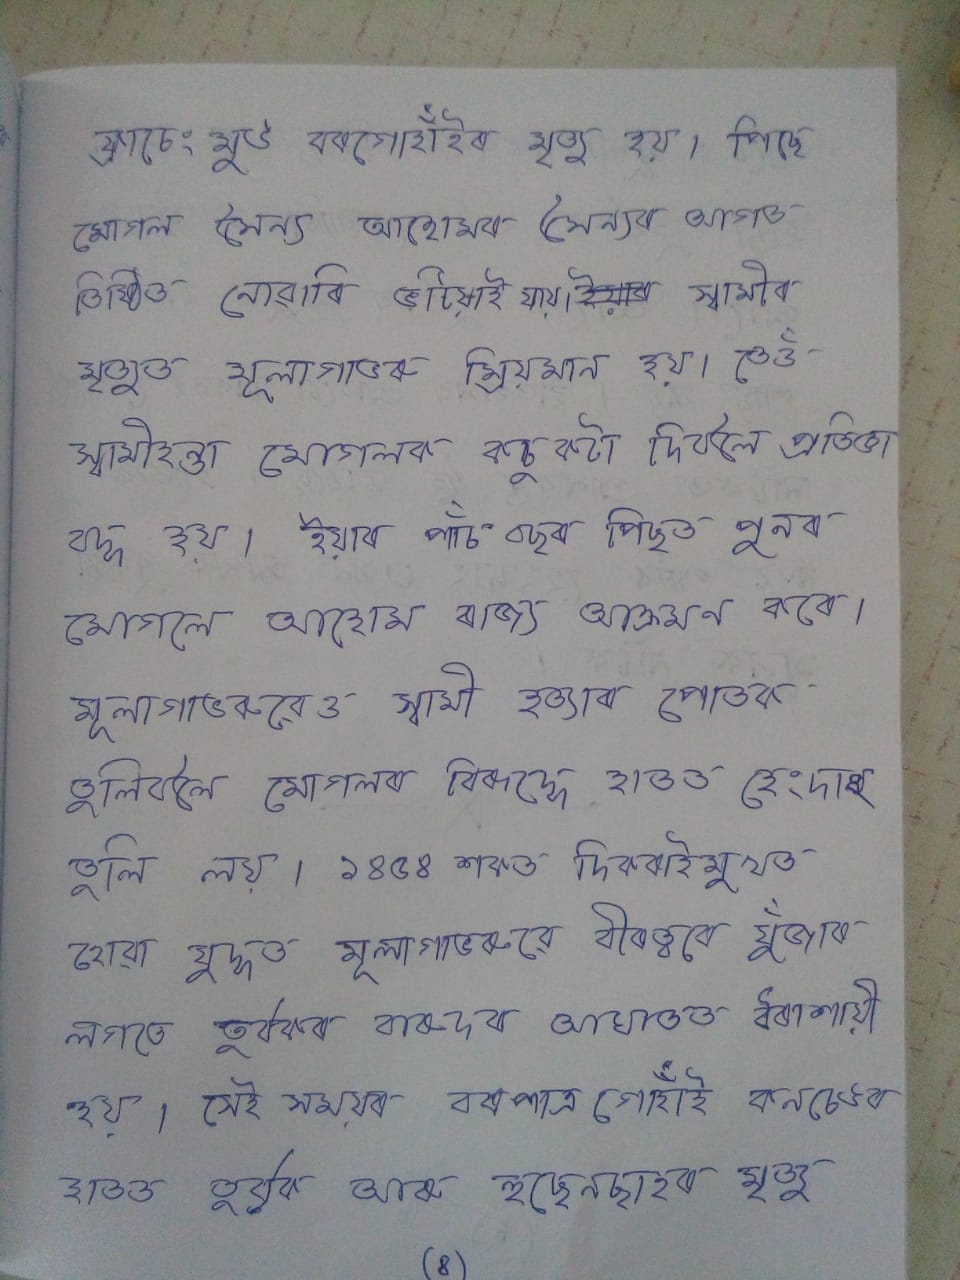 ফ্ৰাচেং মুঙ বৰগোহাঁইৰ মৃত্যু হয়। পিছে
মোগল সৈন্য আহোমৰ সৈন্যৰ আগত
তিষ্ঠিত নোৱাৰি ভটিয়াই যায়। স্বামীৰ
মৃত্যুত মূলাগাভৰু ম্ৰিয়মান হয়। তেওঁ
স্বামীহন্তা মোগলক কচুকটা দিবলৈ প্ৰতিজ্ঞা
বদ্ধ হয়। ইয়াৰ পাঁচ বছৰ পিছত পুনৰ
মোগলে আহোম ৰাজ্য আক্ৰমন কৰে।
মূলাগাভৰুৱেও স্বামী হত্যাৰ পোতক
তুলিবলৈ মোগলৰ বিৰুদ্ধে হাতত হেংদাং
তুলি লয়। ১৪৫৪ শকত দিকৰাইমুখত
হোৱা যুদ্ধত মূলাগাভৰুৱে বীৰত্বৰে যুঁজাৰ
লগতে তুৰ্বকৰ বাৰুদৰ আঘাতত ধৰাশায়ী
হয়। সেই সময়ৰ বৰপাত্ৰ গোহাঁই কনচেঙৰ
হাতত তুৰ্বক আৰু হুছেনছাহৰ মৃত্যু
(৪)